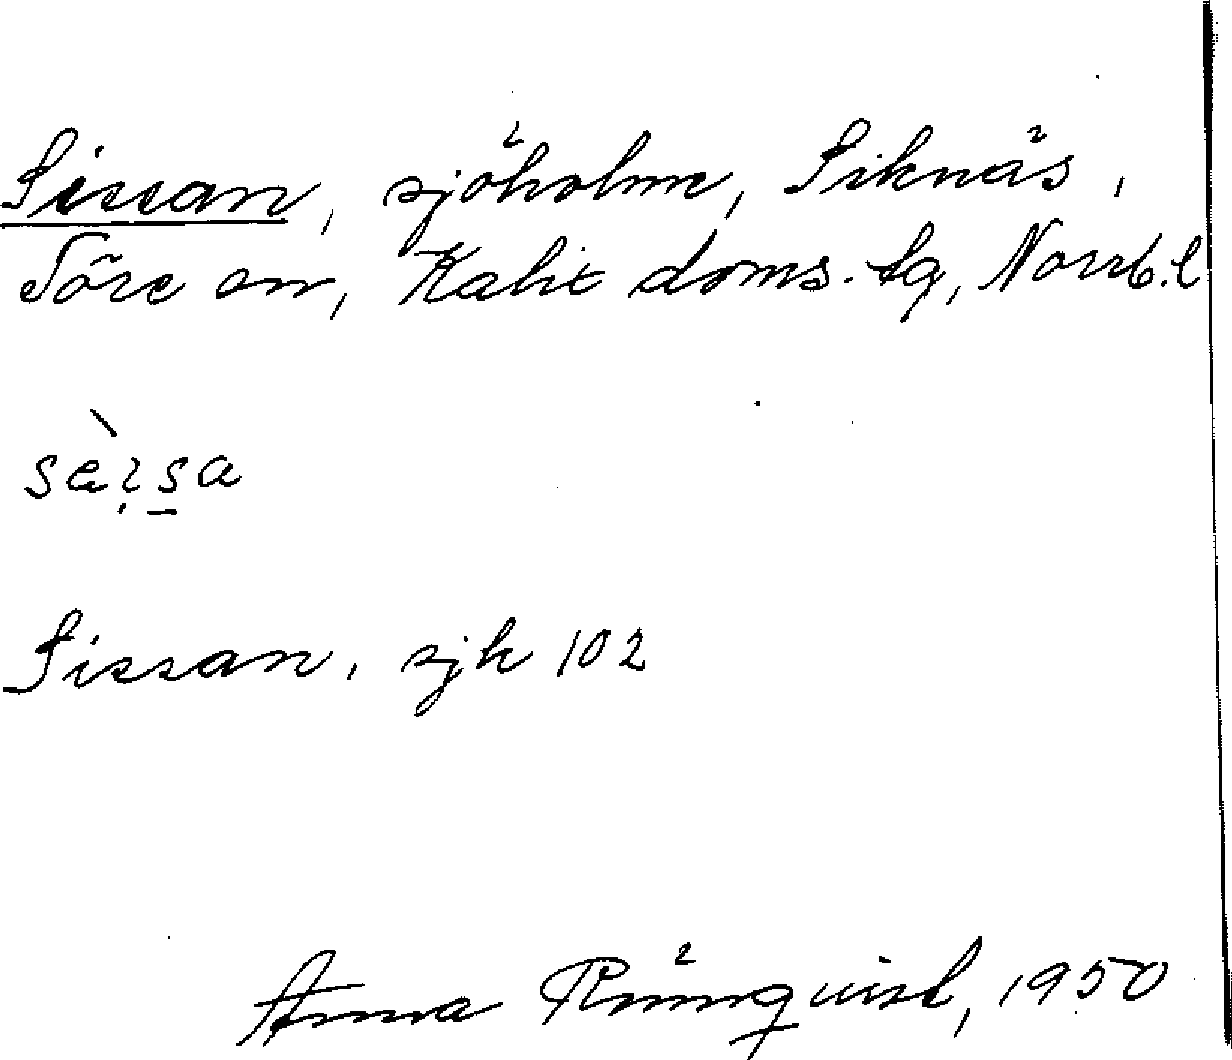 Sissan, sjöholme, Siknäs,
Töre sn, Kalix doms. tg, Norrb. l
sèi̩s̠a
Sissan, sjk 102
Anna Rönnqvist, 1950